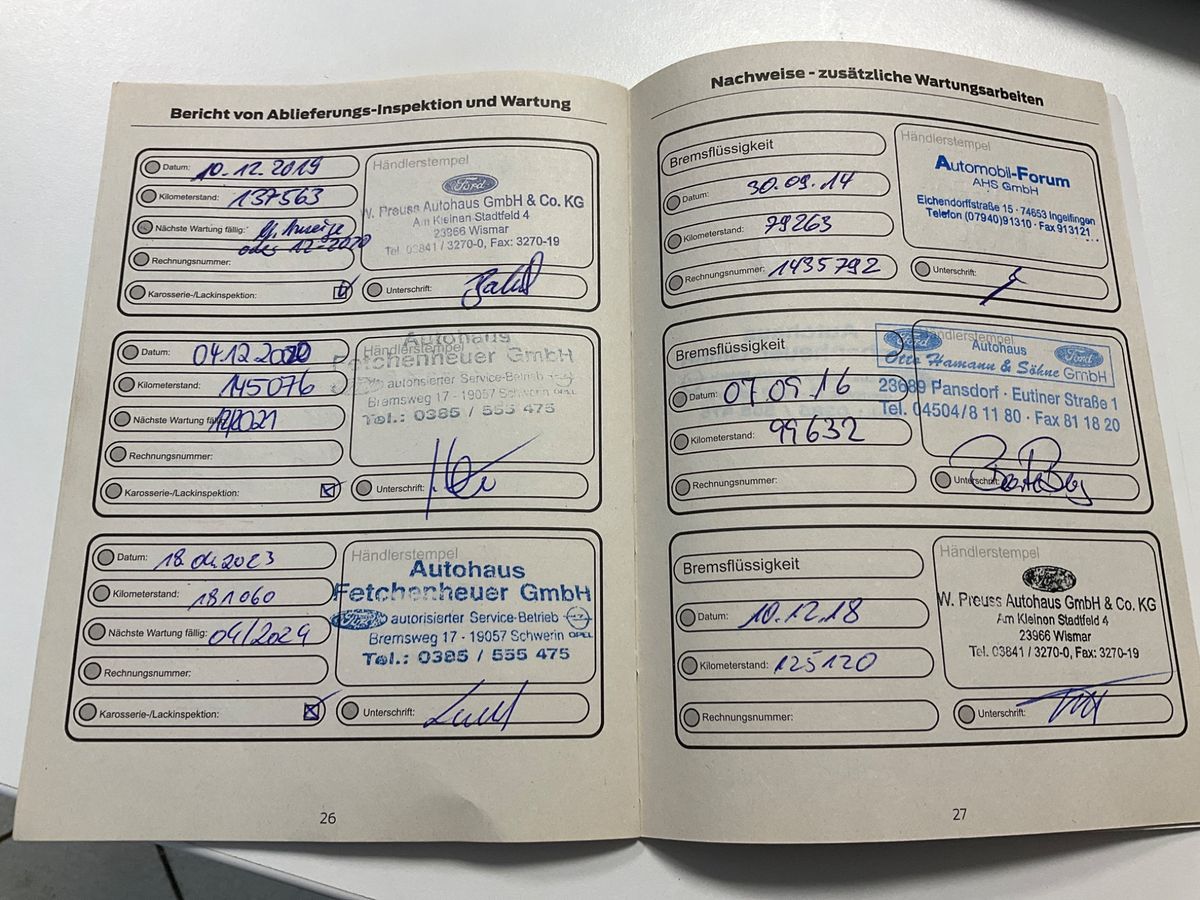 Bericht von Ablieferungs-Inspektion und Wartung
Datum: 10.12.2019
Kilometerstand: 137563
Nächste Wartung fällig: lt. Anzeige
oder 12-2020
Rechnungsnummer:
Karosserie-/Lackinspektion:
Händlerstempel
Ford
W. Preuss Autohaus GmbH & Co. KG
Am Kleinen Stadtfeld 4
23966 Wismar
Tel. 03841 / 3270-0, Fax: 3270-19
Unterschrift:
Datum: 04.12.2020
Kilometerstand: 145076
Nächste Wartung fällig: 12/2021
Rechnungsnummer:
Karosserie-/Lackinspektion:
Händlerstempel
Autohaus
Fetchenheuer GmbH
autorisierter Service-Betrieb
Bremsweg 7 - 19057 Schwerin OPEL
Tel.: 0385 / 555 475
Unterschrift:
Datum: 18.04.2023
Kilometerstand: 181060
Nächste Wartung fällig: 04/2024
Rechnungsnummer:
Karosserie-/Lackinspektion:
Händlerstempel
Autohaus
Fetchenheuer GmbH
Ford autorisierter Service-Betrieb
Bremsweg 17 - 19057 Schwerin OPEL
Tel.: 0385 / 555 475
Unterschrift:
26
Nachweise - zusätzliche Wartungsarbeiten
Bremsflüssigkeit
Datum: 30.09.14
Kilometerstand: 79263
Rechnungsnummer: 1435792
Händlerstempel
Automobil-Forum
AHS GmbH
Eichendorffstraße 15 · 74653 Ingelfingen
Telefon (07940)91310 · Fax 913121
Unterschrift:
Bremsflüssigkeit
Datum: 07.09.16
Kilometerstand: 99632
Rechnungsnummer:
Händlerstempel
Ford Autohaus Ford
Otto Hamann & Söhne GmbH
23689 Pansdorf · Eutiner Straße 1
Tel. 04504/8 11 80 · Fax 81 18 20
Unterschrift:
Bremsflüssigkeit
Datum: 10.12.18
Kilometerstand: 125120
Rechnungsnummer:
Händlerstempel
W. Preuss Autohaus GmbH & Co. KG
Am Kleinen Stadtfeld 4
23966 Wismar
Tel. 03841 / 3270-0, Fax: 3270-19
Unterschrift:
27